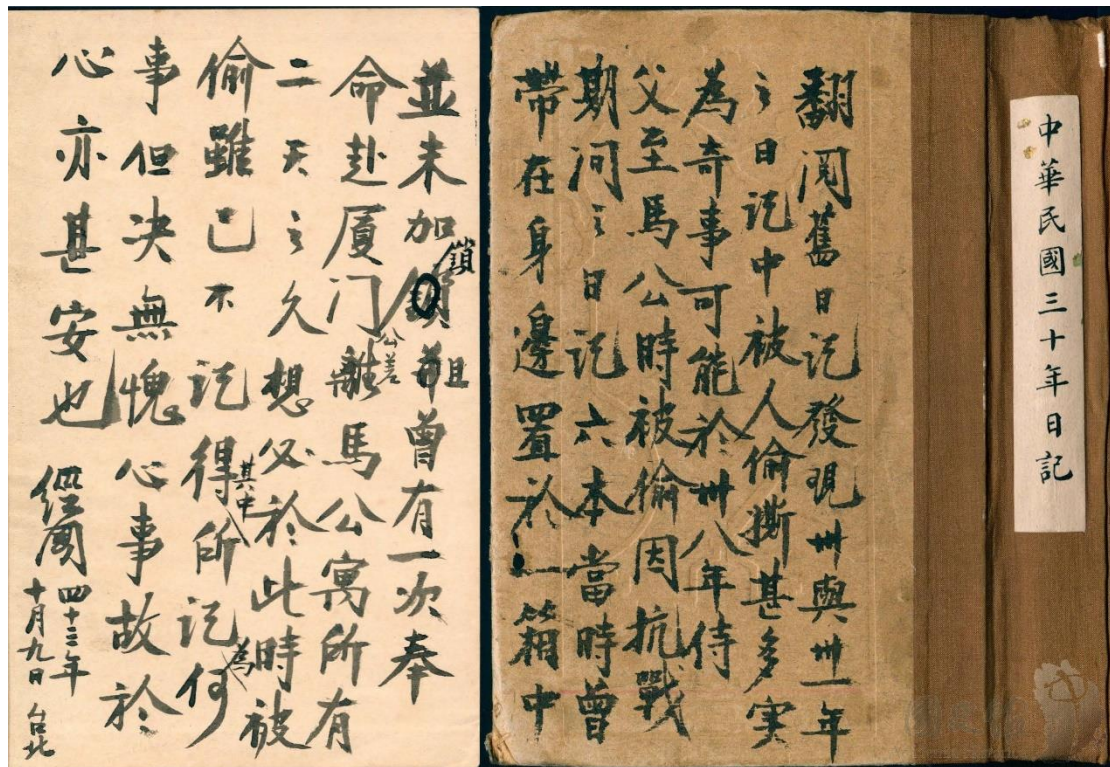 中華民國三十年日記
翻閱舊日记發現卅與卅一年
之日记中被人偷撕甚多实
為奇事可能於卅八年侍
父至馬公時被偷因抗戰
期间之日记六本當時曾
帶在身邊置於一箱中
並未加鎖且曾有一次奉
命赴厦门公差離馬公寓所有
二天之久想必於此時被
偷雖已不记得其中所记為何
事但决無愧心事故於
心亦甚安也
經國
四十三年
十月九日 台北